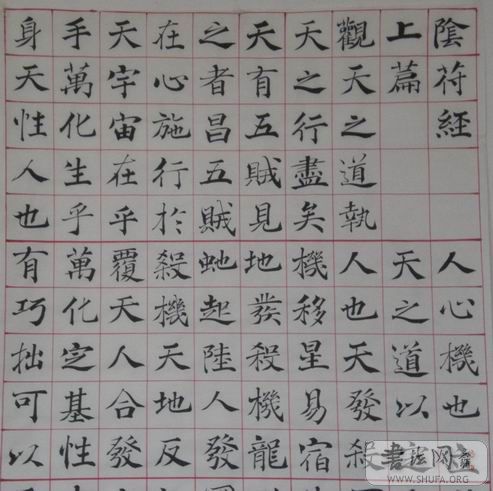 陰符經
上篇
觀天之道執
天之行盡矣
天有五賊見
之者昌五賊
在心施行於
天宇宙在乎
手萬化生乎
身天性人也
人心機也立
天之道以
人也天發殺
機移星易宿
地發殺機龍
虵起陸人發
殺機天地反
覆天人合發
萬化定基性
有巧拙可以
書法网
WWW.SHUFA.ORG